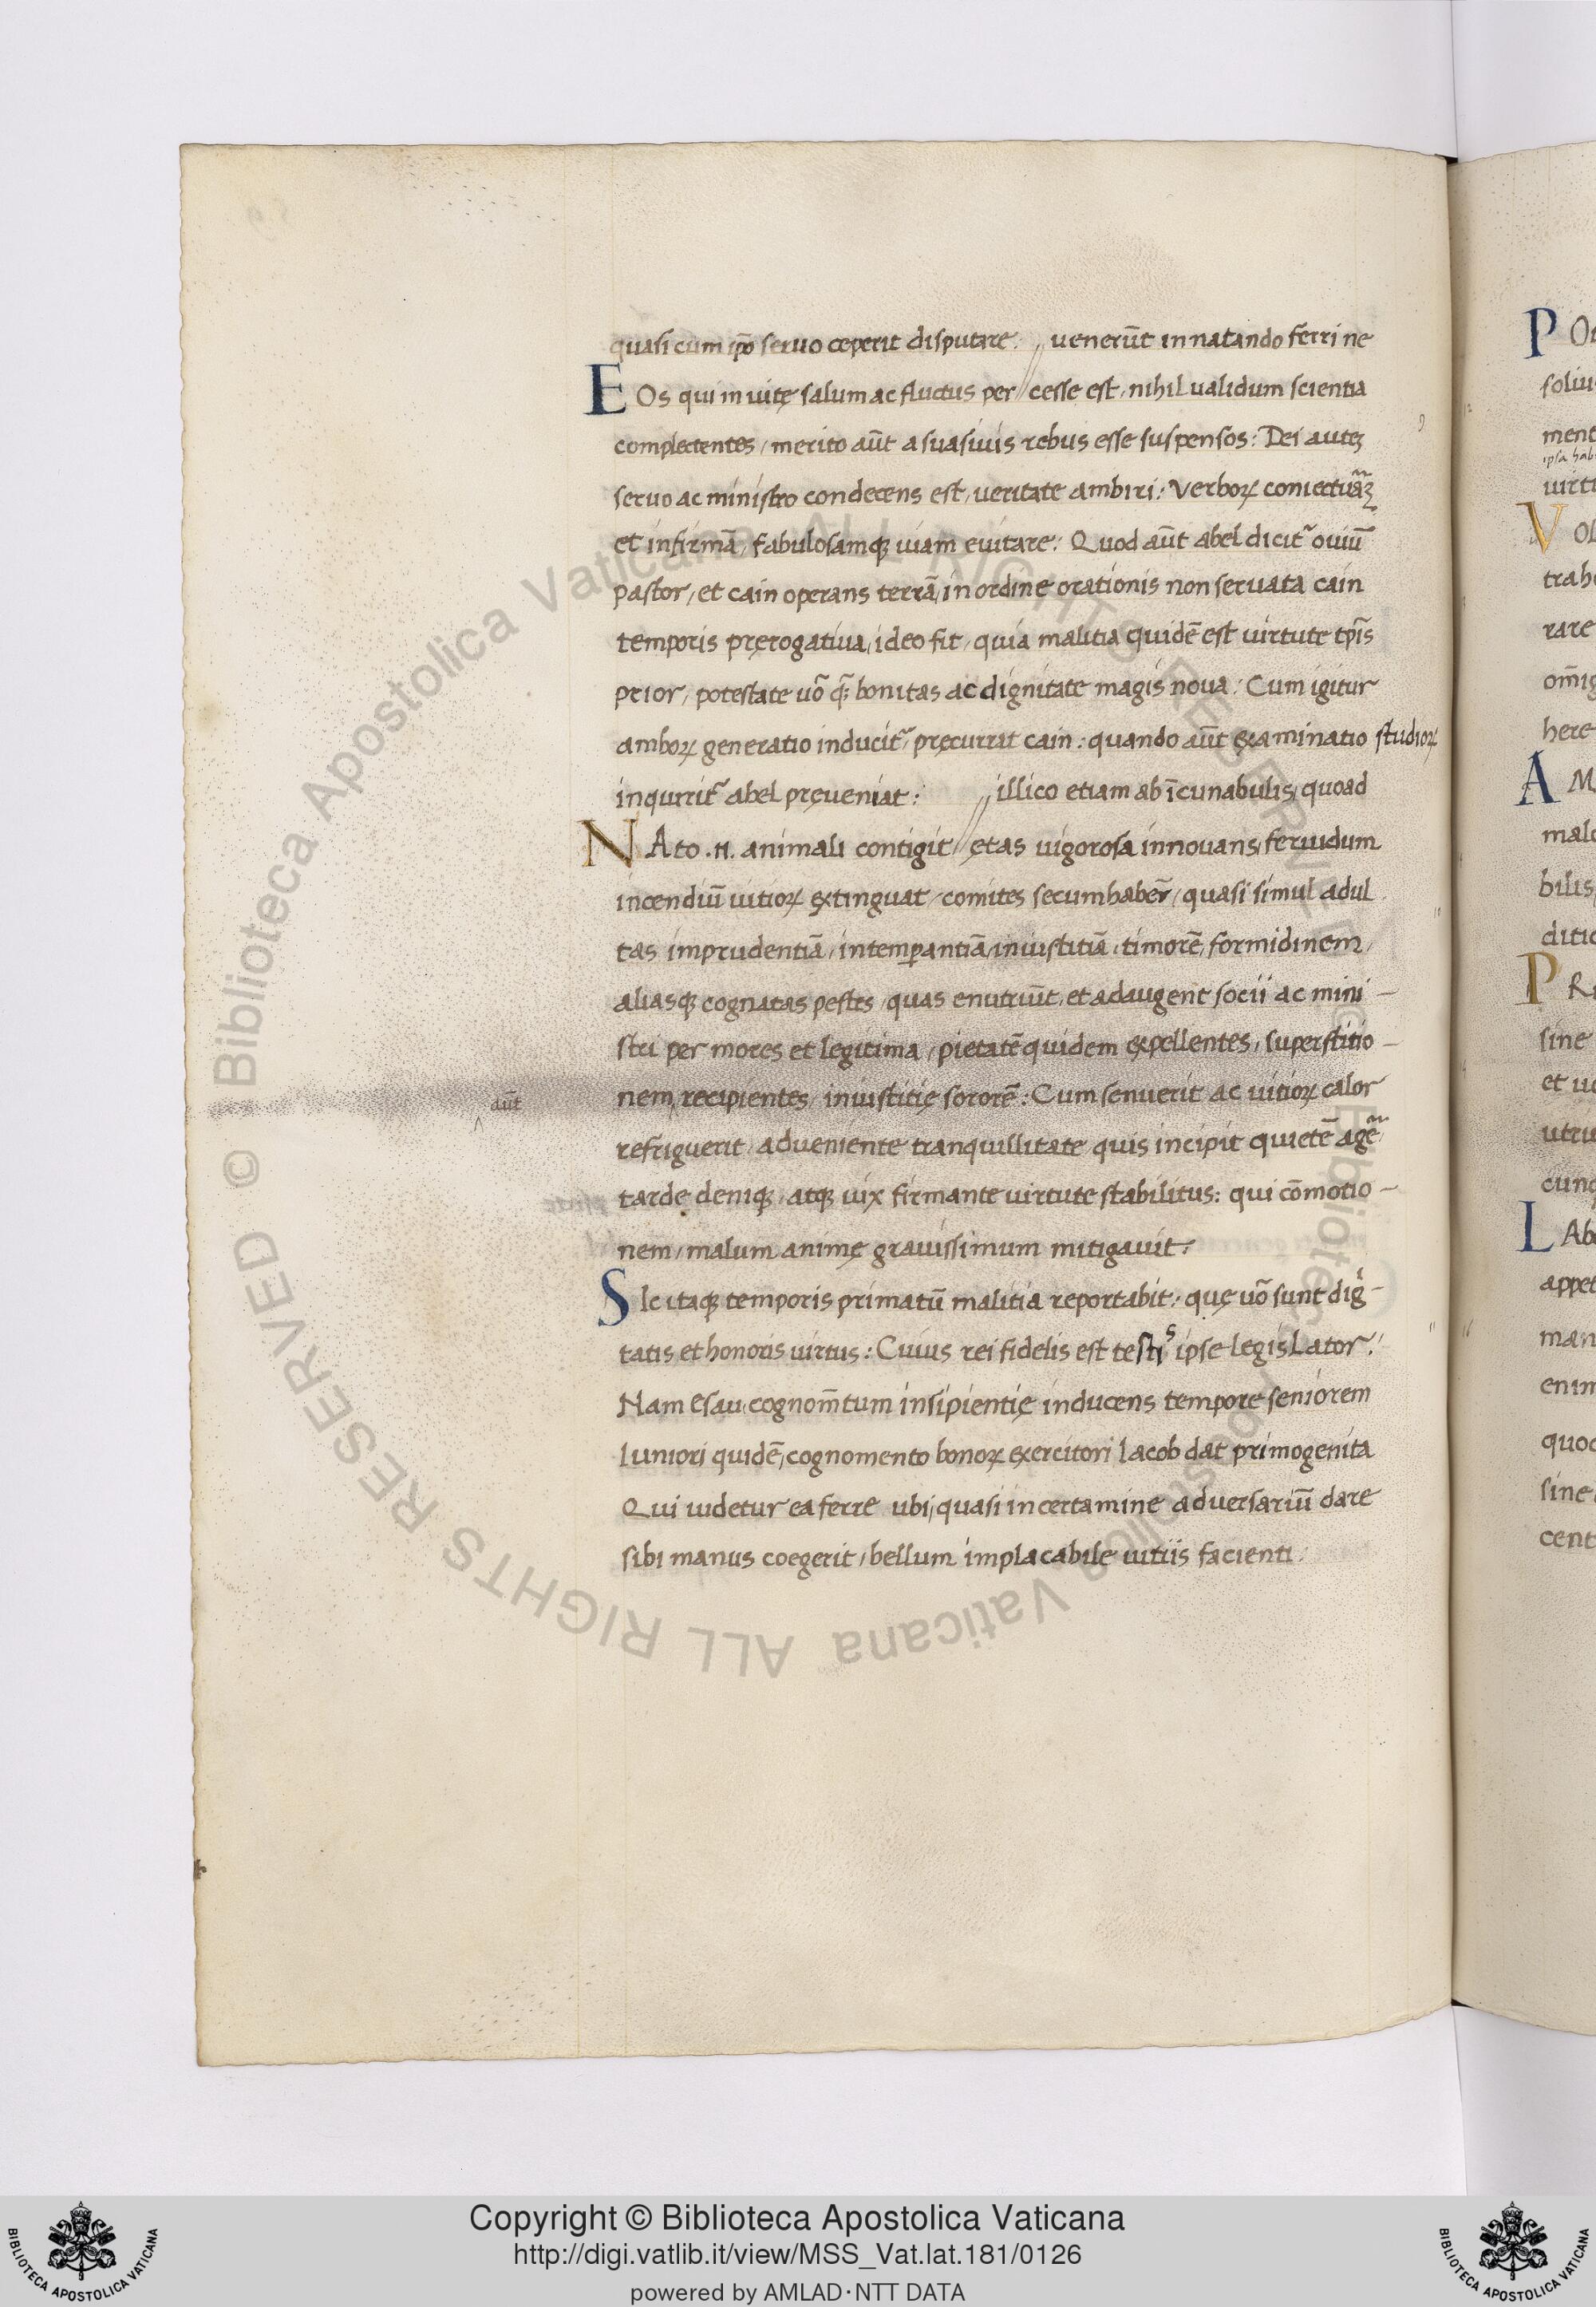 quasi cum ip̄o seruo ceperit disputare: // uenerūt innatando ferri ne
EOs qui in uitę salum ac fluctus per // cesse est, nihil ualidum scientia
complectentes, merito aūt a suasiuis rebus esse suspensos: Dei autez
seruo ac ministro condecens est, ueritate ambiri: Verboꝝ
et infirmā, fabulosamqꝫ uiam euitare: Quod aūt abel dicit᷑ ouiū
pastor, et cain operans terrā, in ordine orationis non seruata cain
temporis pręrogatiua, ideo fit, quia malitia quidē est uirtute tp̄is
prior, potestate uō bonitas ac dignitate magis noua: Cum igitur
amboꝝ generatio inducit᷑, pręcurrat cain: quando aūt examinatio studioꝝ
inqurrit᷑ abel pręueniat: // illico etiam ab īcunabulis, quoad
NAto .n. animali contigit // ętas uigorosa innouans, feruidum
incendiū uitioꝝ extinguat, comites secum haber̄, quasi simul adul
tas imprudentiā, intemꝑantiā, iniustitiā, timorē, formidinem,
aliasqꝫ cognatas pestes, quas enutriūt, et adaugent socii ac mini-
stri per mores et legitima, pietatē quidem expellentes, superstitio-
nem, recipientes, iniustitię sororē: Cum senuerit ac uitioꝝ calor
aūt
refriguerit, adueniente tranquillitate, quis incipit quietē agē᷑
tarde denique, atqꝫ uix firmante uirtute stabilitus: qui cōmotio-
nem, malum animę grauissimum mitigauit:
SIc itaqꝫ temporis primatū malitia reportabit: quę uō sunt digⁱ-
tatis et honoris uirtus: Cuius rei fidelis est testis ipse legislator:
Nam esau, cognom̄tum insipientię inducens tempore seniorem
Iuniori quidē, cognomento bonoꝝ exercitori Iacob dat primogenita
Qui uidetur ea ferre ubi, quasi in certamine aduersariū dare
sibi manus coegerit, bellum implacabile uitiis facienti.
Copyright © Biblioteca Apostolica Vaticana
http://digi.vatlib.it/view/MSS_Vat.lat.181/0126
powered by AMLAD·NTT DATA
BIBLIOTECA APOSTOLICA VATICANA
BIBLIOTECA APOSTOLICA VATICANA
© Biblioteca Apostolica Vaticana ALL RIGHTS RESERVED © Biblioteca Apostolica Vaticana ALL RIGHTS RESERVED